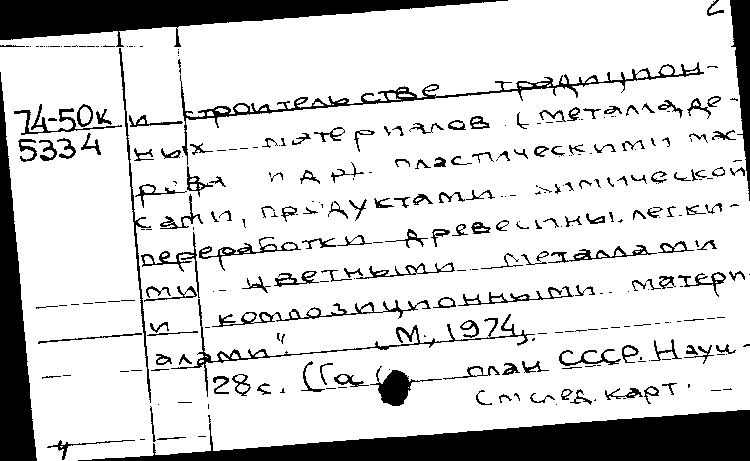 2
74-50к и строительстве традицион-
5334 ных материалов (металла, де-
рева и др). пластическими мас-
сами, продуктами химической
переработки древесины, легки-
ми цветными металлами
и композиционными матери-
алами". М., 1974.
28с. (Гос план СССР. Науч-
См след. карт.
4